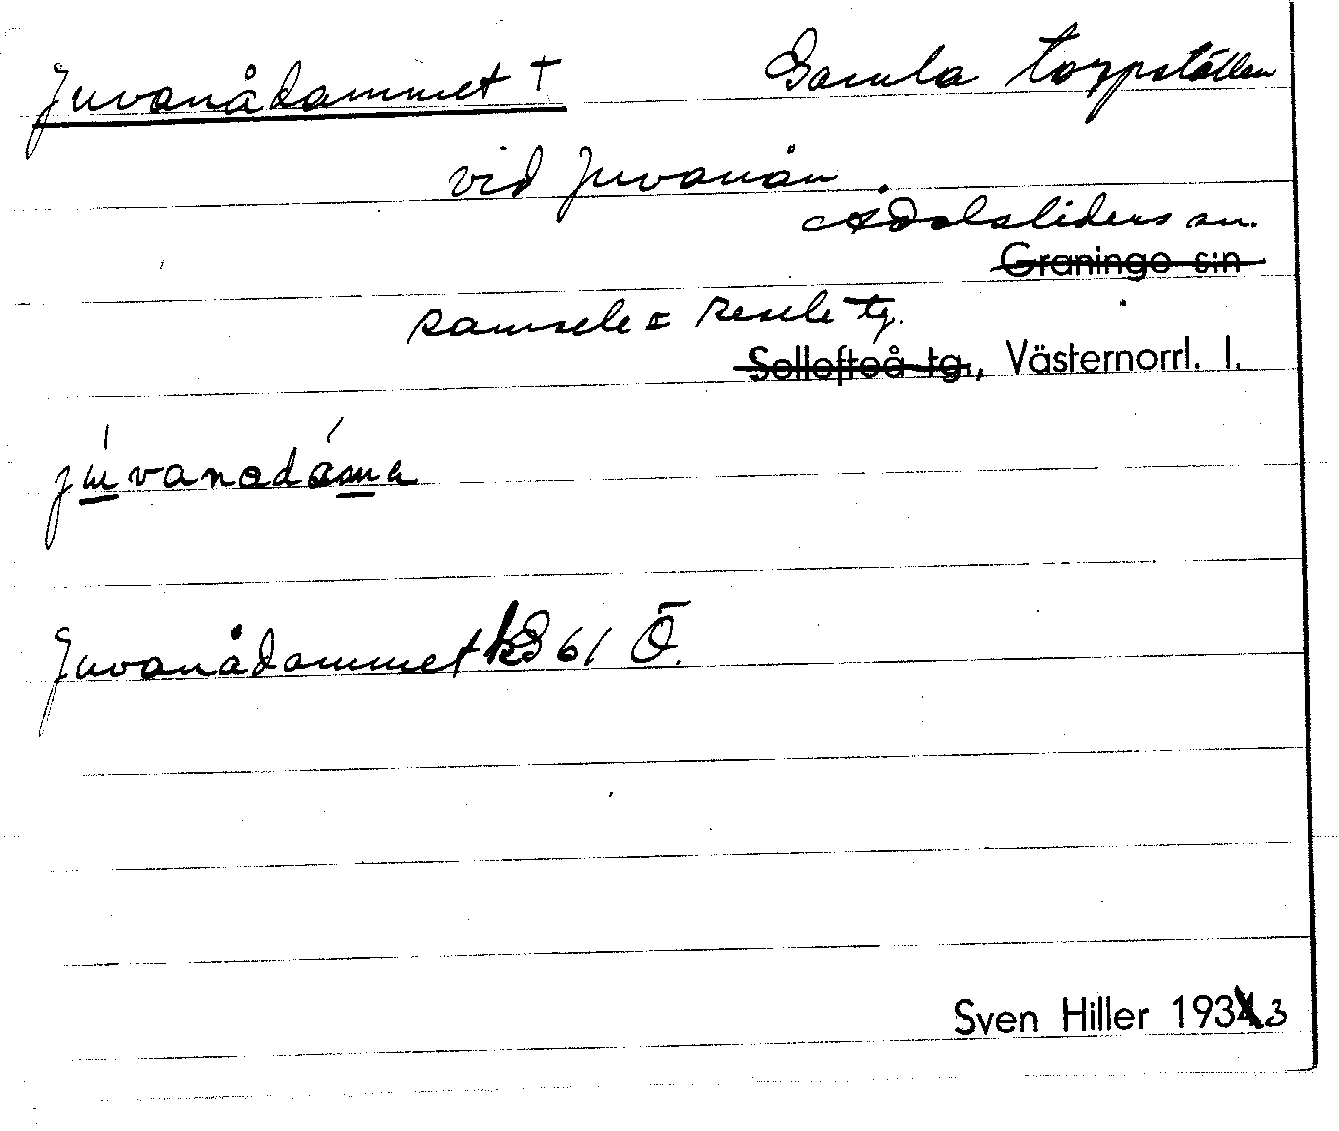 Juvanådammet † Gamla torpställen
vid Juvanån
Ådalsliden sn.
Graninge s:n
Ramsele & Resele tg.
Sollefteå tg., Västernorrl. l.
Juvanådammet 61 Ö.
Sven Hiller 1933